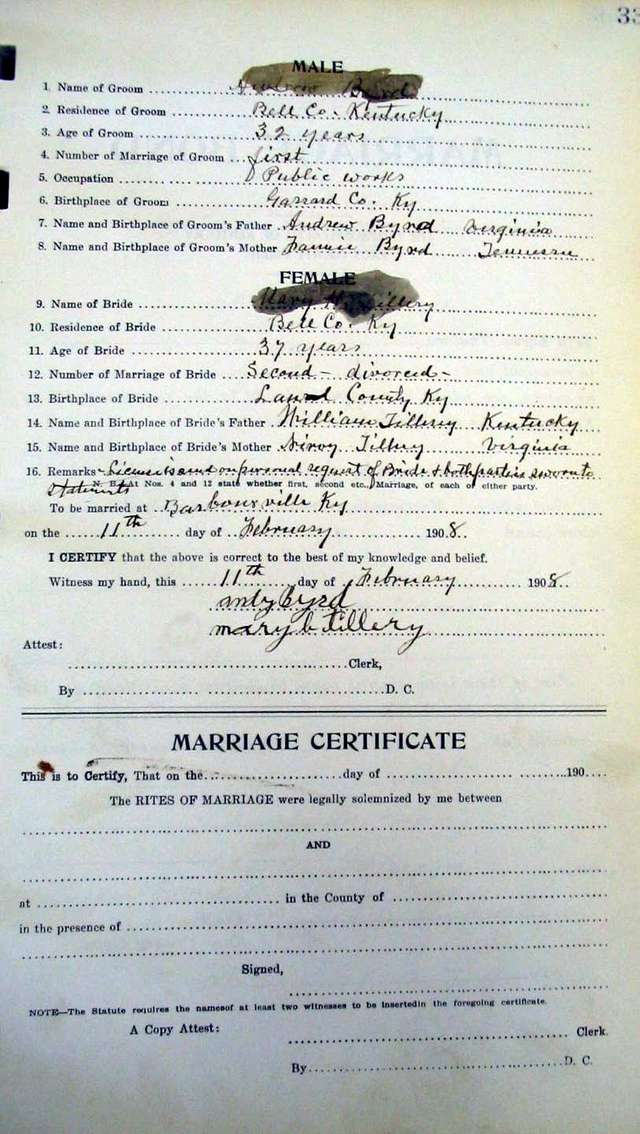 33
MALE
1. Name of Groom Andrew Byrd
2. Residence of Groom Bell Co. Kentucky
3. Age of Groom 32 years
4. Number of Marriage of Groom first
5. Occupation Public works
6. Birthplace of Groom Garrard Co. Ky
7. Name and Birthplace of Groom's Father Andrew Byrd Virginia
8. Name and Birthplace of Groom's Mother Fannie Byrd Tennessee
FEMALE
9. Name of Bride Mary Tillery
10. Residence of Bride Bell Co. Ky
11. Age of Bride 37 years
12. Number of Marriage of Bride Second - divorced -
13. Birthplace of Bride County Ky
14. Name and Birthplace of Bride's Father William Tillery Kentucky
15. Name and Birthplace of Bride's Mother Tillery Virginia
16. Remarks - on personal request of Bride & both parties sworn to
N. B. At Nos. 4 and 12 state whether first, second etc., Marriage, of each or either party.
statements
To be married at Barbourville Ky
on the 11th day of February 1908.
I CERTIFY that the above is correct to the best of my knowledge and belief.
Witness my hand, this 11th day of February 1908
andy byrd
mary Tillery
Attest:
Clerk,
By D. C.
MARRIAGE CERTIFICATE
This is to Certify, That on the day of 190
The RITES OF MARRIAGE were legally solemnized by me between
AND
at in the County of
in the presence of
Signed,
NOTE—The Statute requires the namesof at least two witnesses to be insertedin the foregoing certificate.
A Copy Attest: Clerk.
By D. C.